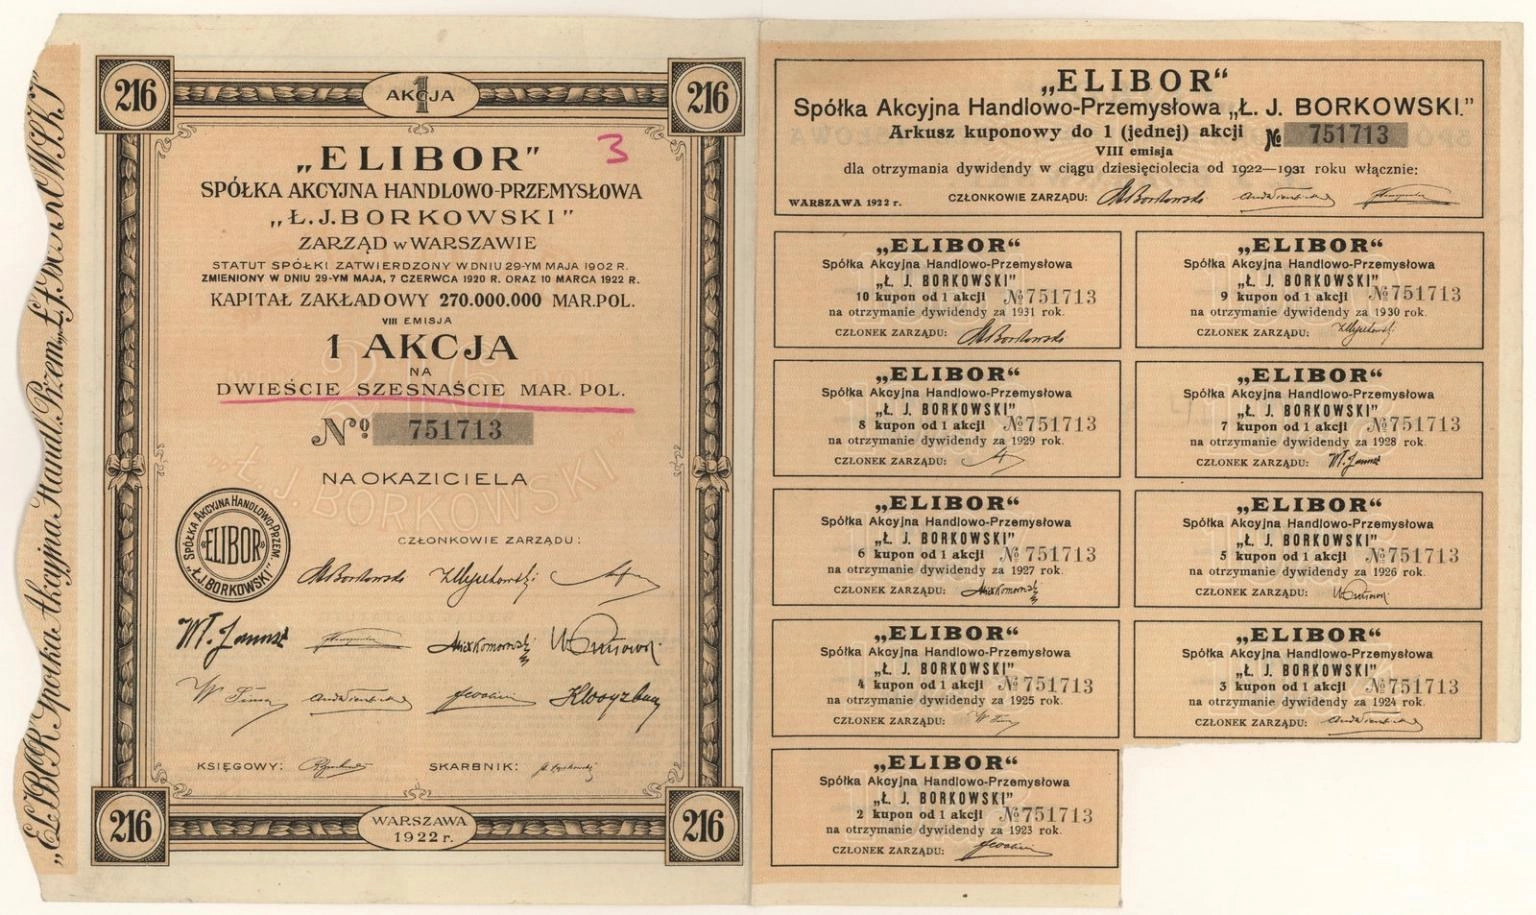 „ELIBOR" Spółka Akcyjna Handl. Przem. „Ł.J. BORKOWSKI"
216
1
AKCJA
216
3
„ELIBOR"
SPÓŁKA AKCYJNA HANDLOWO-PRZEMYSŁOWA
„Ł.J.BORKOWSKI"
ZARZĄD w WARSZAWIE
STATUT SPÓŁKI ZATWIERDZONY W DNIU 29-YM MAJA 1902 R.
ZMIENIONY W DNIU 29-YM MAJA, 7 CZERWCA 1920 R. ORAZ 10 MARCA 1922 R.
KAPITAŁ ZAKŁADOWY 270.000.000 MAR.POL.
VIII EMISJA
1 AKCJA
NA
DWIEŚCIE SZESNAŚCIE MAR. POL.
216
№ 751713
„Ł.J. BORKOWSKI"
NA OKAZICIELA
SPÓŁKA AKCYJNA HANDLOWO-PRZEM.
„ELIBOR"
„Ł.J.BORKOWSKI"
CZŁONKOWIE ZARZĄDU:
KSIĘGOWY:
SKARBNIK:
216
WARSZAWA
1922 r.
216
„ELIBOR“
Spółka Akcyjna Handlowo-Przemysłowa „Ł. J. BORKOWSKI."
Arkusz kuponowy do 1 (jednej) akcji № 751713
VIII emisja
dla otrzymania dywidendy w ciągu dziesięciolecia od 1922—1931 roku włącznie:
WARSZAWA 1922 r.
CZŁONKOWIE ZARZĄDU:
„ELIBOR“
Spółka Akcyjna Handlowo-Przemysłowa
„Ł. J. BORKOWSKI"
10 kupon od 1 akcji № 751713
na otrzymanie dywidendy za 1931 rok.
CZŁONEK ZARZĄDU:
„ELIBOR“
Spółka Akcyjna Handlowo-Przemysłowa
„Ł. J. BORKOWSKI"
9 kupon od 1 akcji № 751713
na otrzymanie dywidendy za 1930 rok.
CZŁONEK ZARZĄDU:
„ELIBOR“
Spółka Akcyjna Handlowo-Przemysłowa
„Ł. J. BORKOWSKI"
8 kupon od 1 akcji № 751713
na otrzymanie dywidendy za 1929 rok.
CZŁONEK ZARZĄDU:
„ELIBOR“
Spółka Akcyjna Handlowo-Przemysłowa
„Ł. J. BORKOWSKI"
7 kupon od 1 akcji № 751713
na otrzymanie dywidendy za 1928 rok.
CZŁONEK ZARZĄDU:
„ELIBOR“
Spółka Akcyjna Handlowo-Przemysłowa
„Ł. J. BORKOWSKI"
6 kupon od 1 akcji № 751713
na otrzymanie dywidendy za 1927 rok.
CZŁONEK ZARZĄDU:
„ELIBOR“
Spółka Akcyjna Handlowo-Przemysłowa
„Ł. J. BORKOWSKI"
5 kupon od 1 akcji № 751713
na otrzymanie dywidendy za 1926 rok.
CZŁONEK ZARZĄDU:
„ELIBOR“
Spółka Akcyjna Handlowo-Przemysłowa
„Ł. J. BORKOWSKI"
4 kupon od 1 akcji № 751713
na otrzymanie dywidendy za 1925 rok.
CZŁONEK ZARZĄDU:
„ELIBOR“
Spółka Akcyjna Handlowo-Przemysłowa
„Ł. J. BORKOWSKI"
3 kupon od 1 akcji № 751713
na otrzymanie dywidendy za 1924 rok.
CZŁONEK ZARZĄDU:
„ELIBOR“
Spółka Akcyjna Handlowo-Przemysłowa
„Ł. J. BORKOWSKI"
2 kupon od 1 akcji № 751713
na otrzymanie dywidendy za 1923 rok.
CZŁONEK ZARZĄDU: